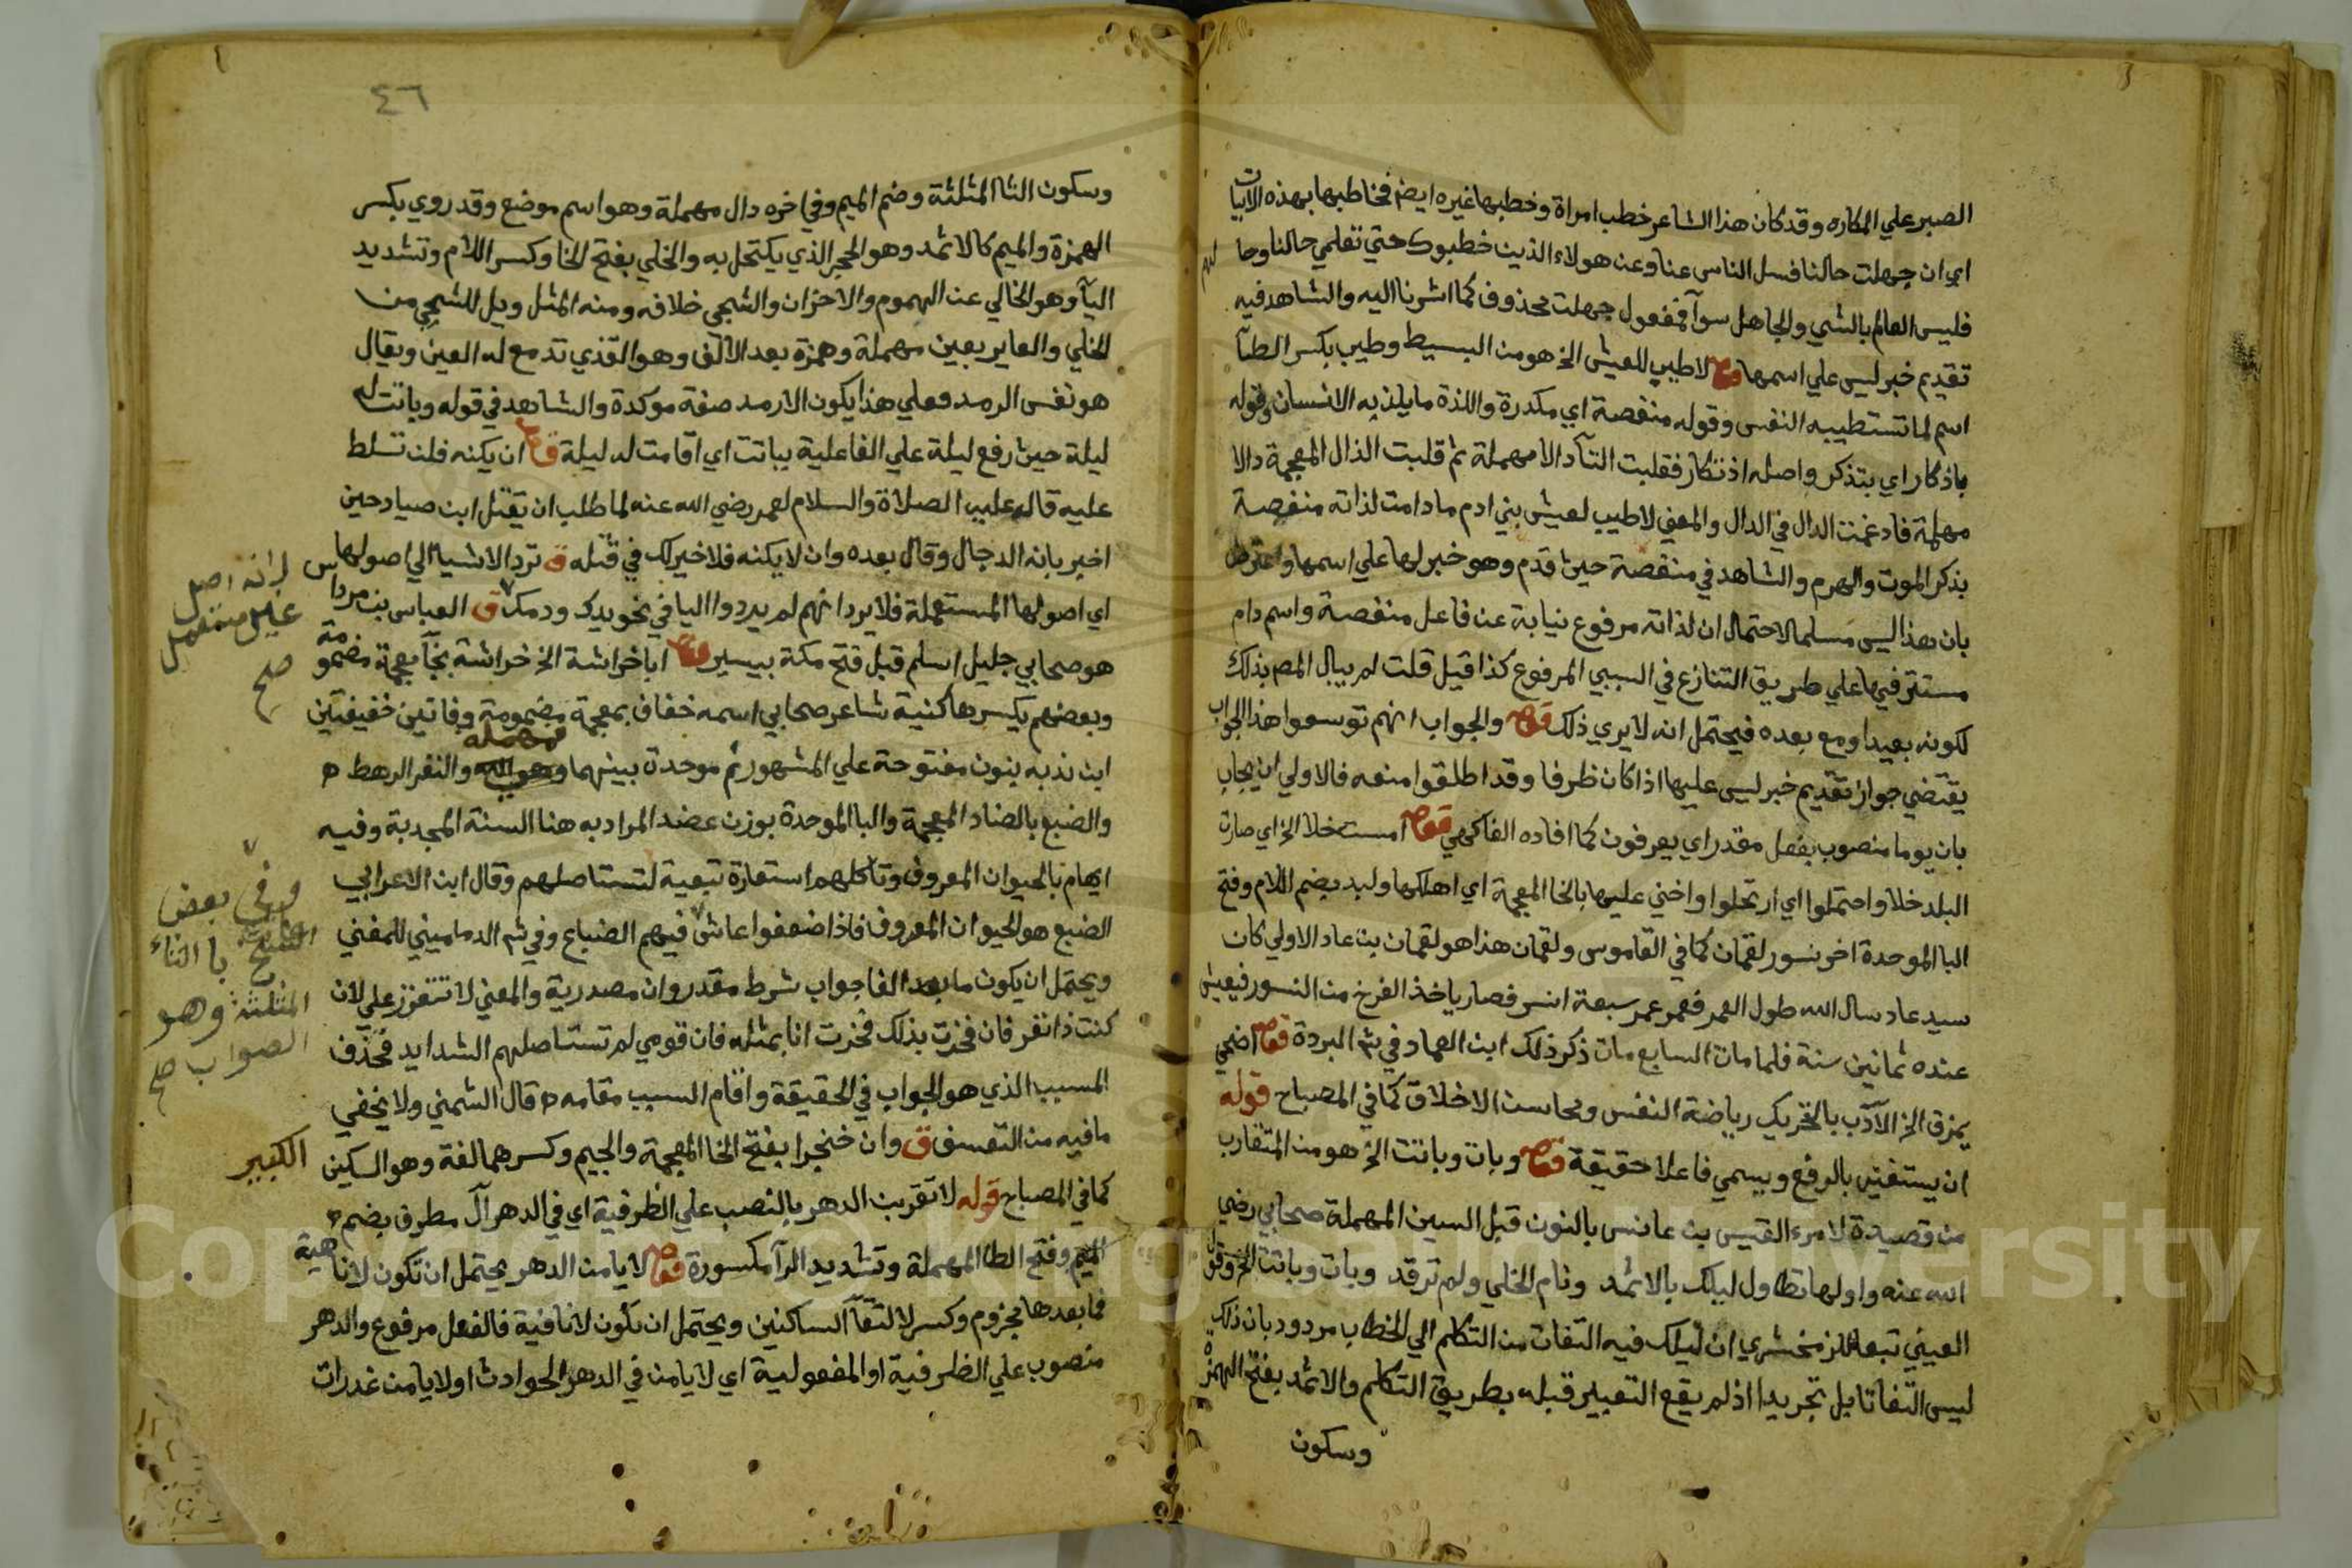 الصبر علي المكاره وقد كان هذا الشاعر خطب امراة وخطبها غيره ايض فخاطبها بهذه الابيات
اي ان جهلت حالنا فسل الناس عنا وعن هولاء الذين خطبوك حتي تعلمي حالنا وحالهم
فليس العالم بالشي والجاهل سوآ فمفعول جهلت محذوف كما اشرنا اليه والشاهد فيه
تقديم خبر ليس علي اسمها قوله لاطيب للعيش الخ هو من البسيط وطيب بكسر الطآ
اسم لما تستطيبه النفس وقوله منغصة اي مكدرة واللذة ما يلذ به الانسان وقوله
باذكار اي بتذكر واصله اذتكار فقلبت التآ دالا مهملة ثم قلبت الذال المعجمة دالا
مهملة فادغمت الدال في الدال والمعني لاطيب لعيش بني ادم ما دامت لذاته منغصة
بذكر الموت والهرم والشاهد في منغصة حيث قدم وهو خبر لها علي اسمها واعترض
بان هذا ليس مسلما لاحتمال ان لذاته مرفوع نيابة عن فاعل منغصة واسم دام
مستتر فيها علي طريق التنازع في السببي المرفوع كذا قيل قلت لم يبال المص بذلك
لكونه بعيدا ومع بعده فيحتمل انه لا يري ذلك قوله والجواب انهم توسعوا هذا الجواب
يقتضي جواز تقديم خبر ليس عليها اذا كان ظرفا وقد اطلقوا منعه فالاولي ان يجاب
بان يوما منصوب بفعل مقدر اي يعرفون كما افاده الفاكهي قوله امست خلا الخ اي صارت
البلد خلا واحتملوا اي ارتحلوا واخني عليها بالخا المعجمة اي اهلكها ولبد بضم اللام وفتح
البا الموحدة اخر نسور لقمان كما في القاموس ولقمان هذا هو لقمان بن عاد الاولي كان
سيد عاد سال الله طول العمر فعمر عمر سبعة انسر فصار ياخذ الفرخ من النسور فيعيش
عنده ثمانين سنة فلما مات السابع مات ذكر ذلك ابن العماد في ش البردة قوله اضحي
يمزق الخ الآدب بالتحريك رياضة النفس ومحاسن الاخلاق كما في المصباح قوله
ان يستغني بالرفع ويسمي فاعلا حقيقة قوله وبات وباتت الخ هو من المتقارب
من قصيدة لامرء القيس بن عانس بالنون قبل السين المهملة صحابي رضي
الله عنه واولها تطاول ليلك بالاثمد ونام الخلي ولم ترقد وبات وباتت الخ وقول
العيني تبعا للزمخشري ان ليلك فيه التفات من التكلم الي الخطاب مردود بان ذلك
ليس التفاتا بل تجريدا اذ لم يقع التعبير قبله بطريق التكلم والاثمد بفتح الهمزة
وسكون
٤٦
وسكون الثا المثلثة وضم الميم وفي اخره دال مهملة وهو اسم موضع وقد روي بكسر
الهمزة والميم كالاثمد وهو الحجر الذي يكتحل به والخلي بفتح الخا وكسر اللام وتشديد
اليآ وهو الخالي عن الهموم والاحزان والشجي خلافه ومنه المثل ويل للشجي من
الخلي والعاير بعين مهملة وهمزة بعد الالف وهو القذي تدمع له العين ويقال
هو نفس الرمد فعلي هذا يكون الارمد صفة موكدة والشاهد في قوله وباتت له
ليلة حيث رفع ليلة علي الفاعلية بباتت اي اقامت له ليلة ان يكنه فلن تسلط
عليه قاله عليه الصلاة والسلام لعمر رضي الله عنه لما طلب ان يقتل ابن صياد حين
اخبر بانه الدجال وقال بعده وان لا يكنه فلا خير لك في قتله ق ترد الاشيا الي اصولها
اي اصولها المستعملة فلا يرد انهم لم يردوا اليا في نحو يدك ودمك ق العباس بن مرداس
لانه اصل
غير مستعمل
صح
هو صحابي جليل اسلم قبل فتح مكة بيسير قوله ابا خراشة الخ خراشة بخآ معجمة مضمومة
وبعضهم يكسرها كنية شاعر صحابي اسمه خفاف بمعجمة مضمومة وفاتين خفيفتين
ابن ندبه بنون مفتوحة علي المشهور ثم موحدة بينهما مهملة والنفر الرهط
والضبع بالضاد المعجمة والبا الموحدة بوزن عضد المراد به هنا السنة المجدبة وفيه
ايهام بالحيوان المعروف وتاكلهم استعارة تبعية لتستاصلهم وقال ابن الاعرابي
الضبع هو الحيوان المعروف فاذا ضعفوا عاش فيهم الضباع وفي ش الدماميني للمغني
وفي بعض
النسخ با الثاء
المثلثة وهو
الصواب صح
ويحتمل ان يكون ما بعد الفا جواب شرط مقدر وان مصدرية والمعني لا تتعزز علي لان
كنت ذا نفر فان فخرت بذلك فخرت انا بمثله فان قومي لم تستاصلهم الشدايد فحذف
المسبب الذي هو الجواب في الحقيقة واقام السبب مقامه قال الشمني ولا يخفي
ما فيه من التعسف ق وان خنجرا بفتح الخا المعجمة والجيم وكسرهما لغة وهو السكين الكبير
كما في المصباح قوله لا تقربن الدهر بالنصب علي الظرفية اي في الدهر آل مطرف بضم
الميم وفتح الطا المهملة وتشديد الرآ مكسورة قوله لا يامن الدهر يحتمل ان تكون لا ناهية
فما بعدها مجزوم وكسر لالتقآ الساكنين ويحتمل ان تكون لا نافية فالفعل مرفوع والدهر
منصوب علي الظرفية او المفعولية اي لا يامن في الدهر الحوادث او لا يامن غدرات
Copyright © King Saud University